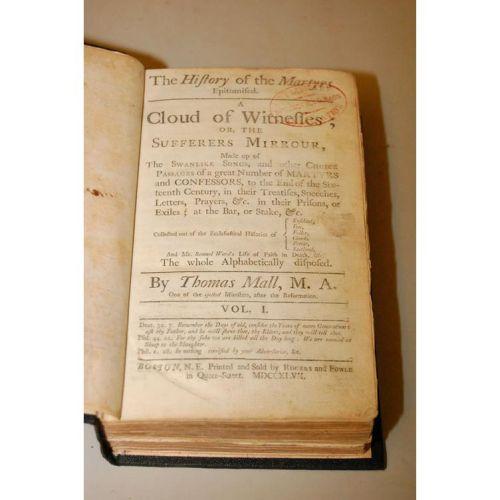 The History of the Martyrs
Epitomised.
A
Cloud of Witnesses;
OR, THE
SUFFERERS MIRROUR,
Made up of
The SWANLIKE SONGS, and other CHOICE
PASSAGES of a great Number of MARTYRS
and CONFESSORS, to the End of the Six-
teenth Century, in their Treatises, Speeches,
Letters, Prayers, &c. in their Prisons, or
Exiles; at the Bar, or Stake, &c.
Collected out of the Ecclesiastical Histories of
Eusebius,
Fox,
Fuller,
Clarke,
And Mr. Samuel Ward's Life of Faith in Death, &c.
The whole Alphabetically disposed.
By Thomas Mall, M. A.
One of the ejected Ministers, after the Reformation.
VOL. I.
Deut. 32. 7. Remember the Days of old, consider the Years of many Generations:
ask thy Father, and he will shew thee; thy Elders, and they will tell thee.
Psal. 44. 22. For thy sake we are killed all the Day long: We are counted as
Sheep to the Slaughter.
Phil. 1. 28. In nothing terrified by your Adversaries, &c.
BOSTON, N. E. Printed and Sold by ROGERS and FOWLE
in Queen-Street. MDCCXLVII.